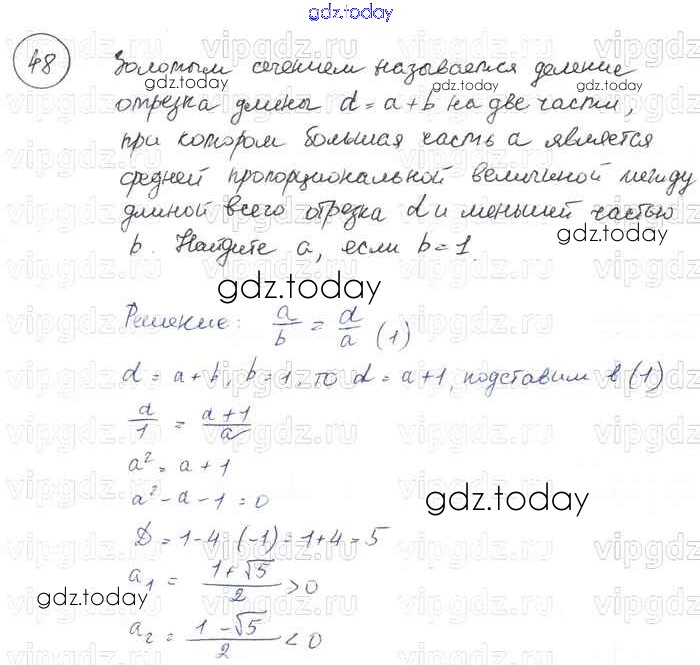 gdz.today
48
Золотым сечением называется деление
отрезка длины d = a + b на две части,
при котором большая часть a является
средней пропорциональной величиной между
длиной всего отрезка d и меньшей частью
b. Найдите a, если b = 1.
gdz.today
Решение: a/b = d/a (1)
d = a + b, b = 1, то d = a + 1, подставим в (1)
a/1 = a+1/a
a² = a + 1
a² - a - 1 = 0
gdz.today
D = 1 - 4 · (-1) = 1 + 4 = 5
a₁ = 1+√5/2 > 0
gdz.today
a₂ = 1-√5/2 < 0